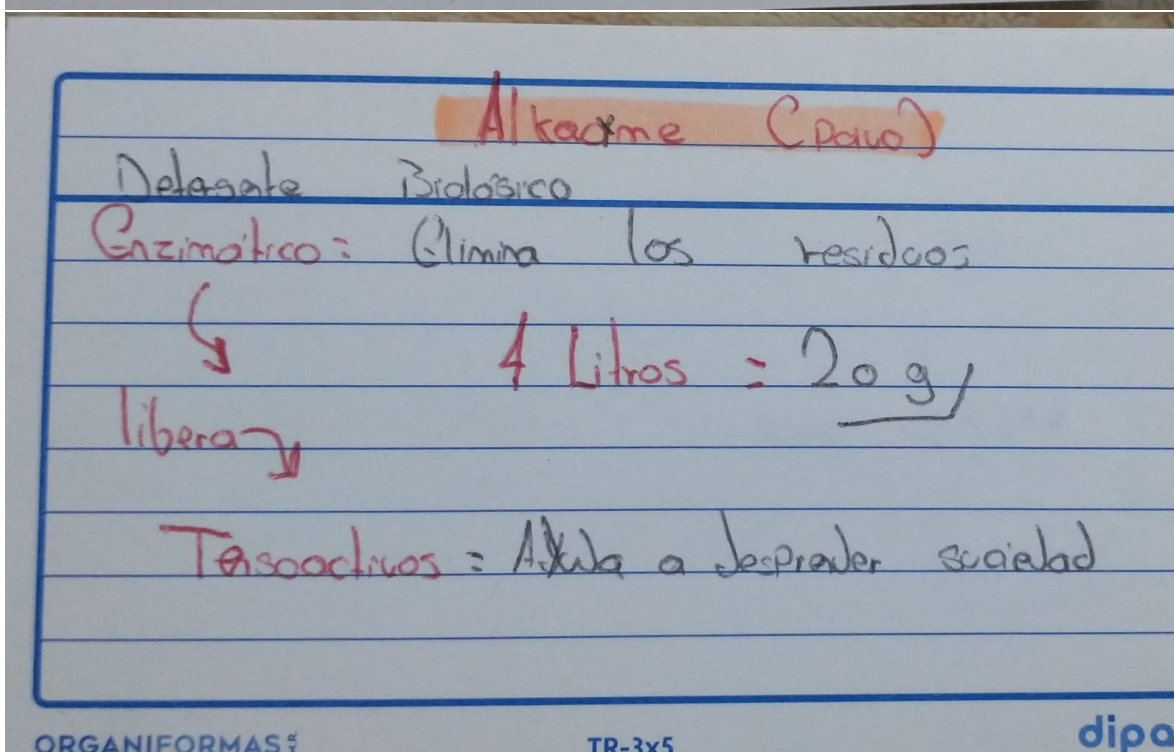 Alkacyme (Polvo)
Detergente Biológico
Enzimático: Elimina los residuos
4 Litros = 20 g
libera
Tensoactivos = Ayuda a desprender suciedad
ORGANIFORMAS
TR-3x5
dipa